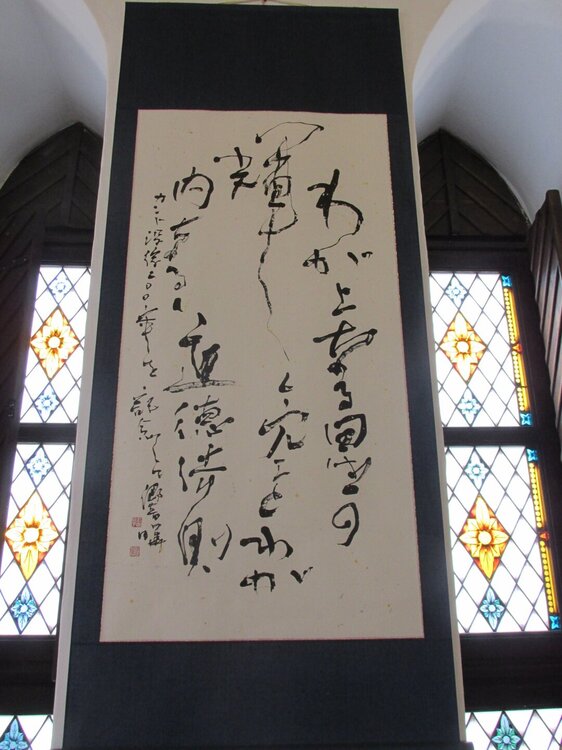 わが上なる
輝く空とわが
内なる道徳法則
カント没後二〇〇年を記念して